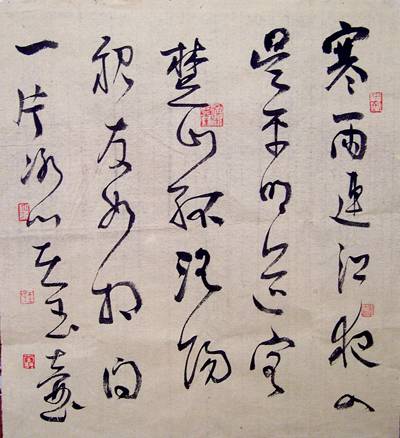 寒雨連江夜入
吳平明送客
楚山孤洛陽
親友如相問
一片冰心在玉壺